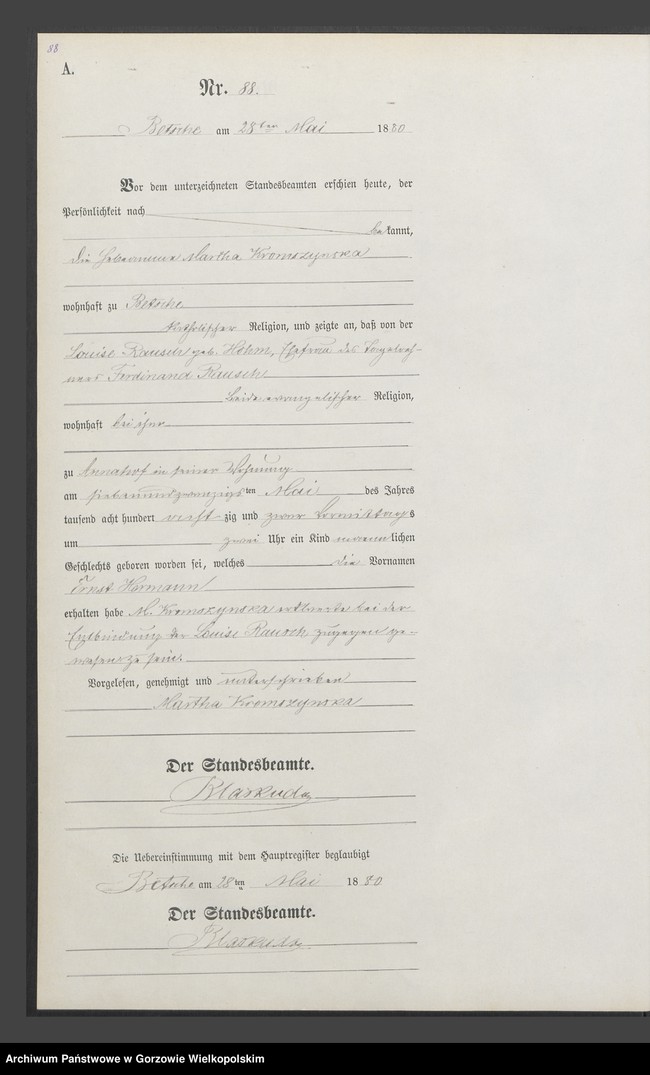 88
A.
Nr. 88.
Betsche am 28ten Mai 1880
Vor dem unterzeichneten Standesbeamten erschien heute, der
Persönlichkeit nach
bekannt,
die Hebamme Martha Kromszynska
wohnhaft zu Betsche
katholischer Religion, und zeigte an, daß von der
Louise Rausch geb. Hohm, Ehefrau des Tagelöh-
ners Ferdinand Rausch
beide evangelischer Religion,
wohnhaft bei ihm
zu Annahof in seiner Wohnung
am siebenundzwanzigsten Mai des Jahres
tausend acht hundert achtzig und zwar Vormittags
um zwei Uhr ein Kind männlichen
Geschlechts geboren worden sei, welches die Vornamen
Ernst Hermann
erhalten habe M. Kromszynska erklärte bei der
Entbindung der Louise Rausch zugegen ge-
wesen zu sein.
Vorgelesen, genehmigt und unterschrieben
Martha Kromszynska
Der Standesbeamte.
Die Uebereinstimmung mit dem Hauptregister beglaubigt
Betsche am 28ten Mai 1880
Der Standesbeamte.
Archiwum Państwowe w Gorzowie Wielkopolskim